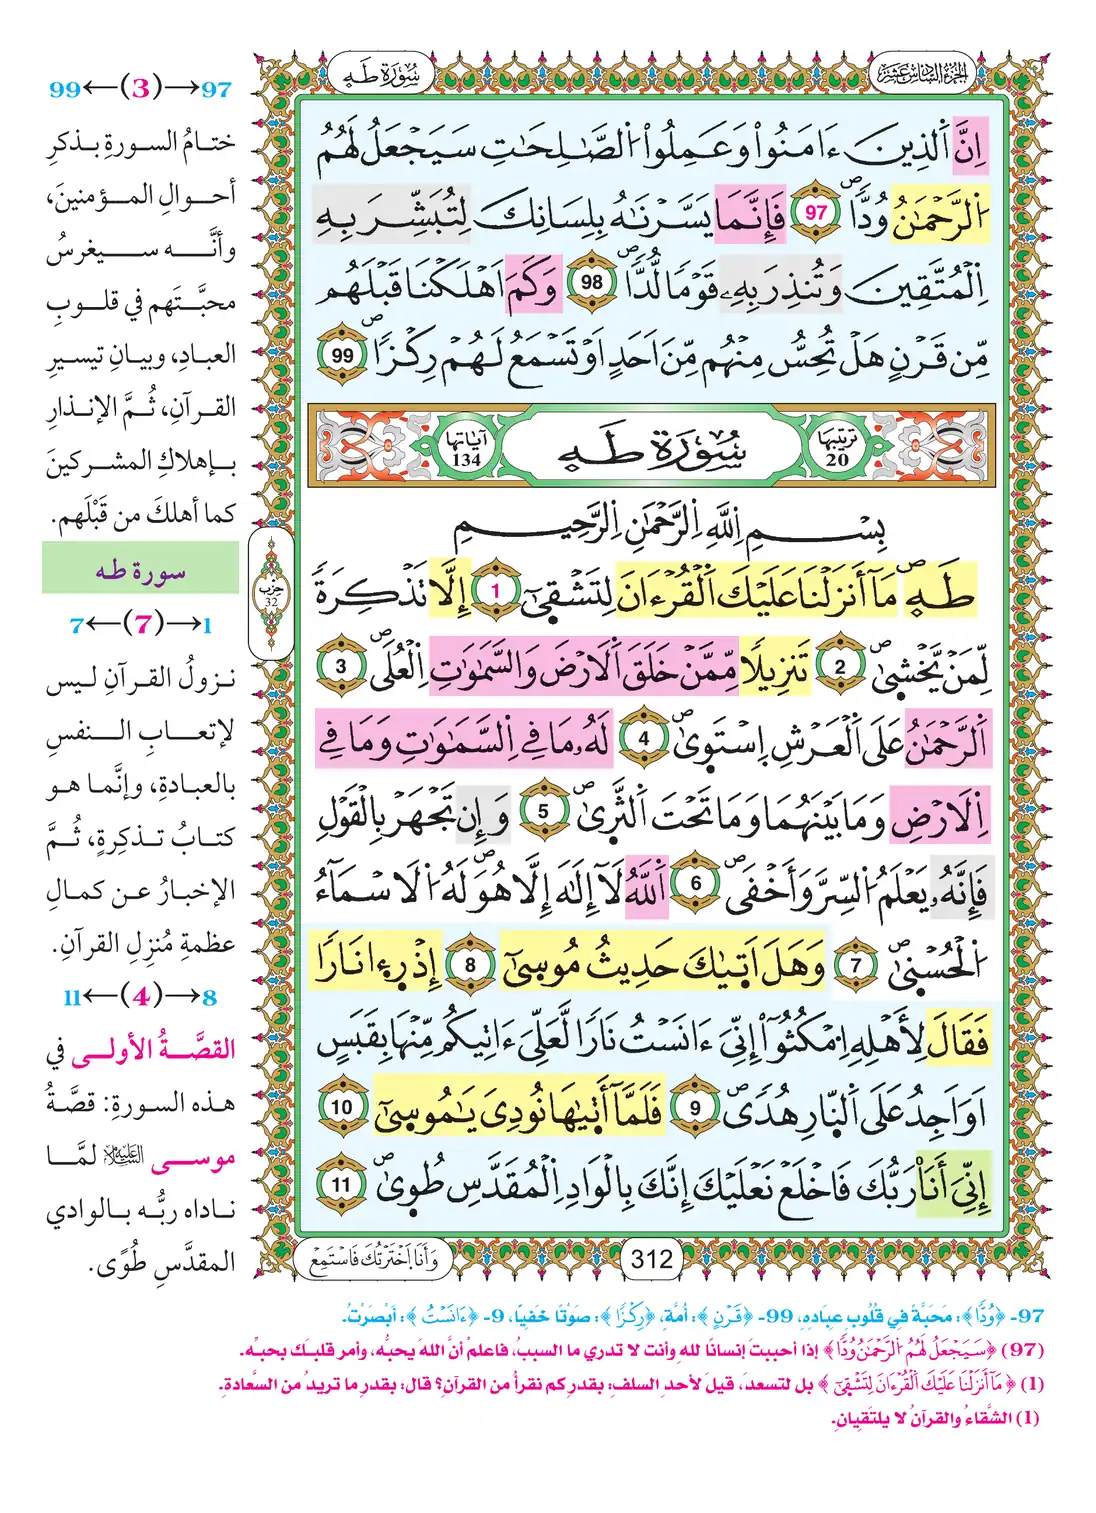 الجزء السادس عشر
سُورَة طَهِ
إِنَّ اَ۬لذِينَ ءَامَنُواْ وَعَمِلُواْ اُ۬لصَّٰلِحَٰتِ سَيَجْعَلُ لَهُمُ
اُ۬لرَّحْمَٰنُ وُدّاٗۖ 97 فَإِنَّمَا يَسَّرْنَٰهُ بِلِسَانِكَ لِتُبَشِّرَ بِهِ
اِ۬لْمُتَّقِينَ وَتُنذِرَ بِهِۦ قَوْماٗ لُّدّاٗۖ 98 وَكَمَ اَهْلَكْنَا قَبْلَهُم
مِّن قَرْنٍ هَلْ تُحِسُّ مِنْهُم مِّنَ اَحَدٍ اَوْ تَسْمَعُ لَهُمْ رِكْزاٗۖ 99
ترتيبها 20
سُورَة طَهِ
آياتها 134
بِسْمِ اِ۬للَّهِ اِ۬لرَّحْمَٰنِ اِ۬لرَّحِيمِ
طَهِۖ مَآ أَنزَلْنَا عَلَيْكَ اَ۬لْقُرْءَانَ لِتَشْقَىٰٓ 1 إِلَّا تَذْكِرَةٗ
لِّمَنْ يَّخْش۪ىٰۖ 2 تَنزِيلاٗ مِّمَّنْ خَلَقَ اَ۬لَارْضَ وَالسَّمَٰوَٰتِ اِ۬لْعُلَىۖ 3
اَ۬لرَّحْمَٰنُ عَلَى اَ۬لْعَرْشِ اِ۪سْتَو۪ىٰۖ 4 لَهُۥ مَا فِے اِ۬لسَّمَٰوَٰتِ وَمَا فِے
اِ۬لَارْضِ وَمَا بَيْنَهُمَا وَمَا تَحْتَ اَ۬لثَّر۪ىٰۖ 5 وَإِن تَجْهَرْ بِالْقَوْلِ
فَإِنَّهُۥ يَعْلَمُ اُ۬لسِّرَّ وَأَخْفَىۖ 6 اَ۬للَّهُ لَآ إِلَٰهَ إِلَّا هُوَۖ لَهُ اُ۬لَاسْمَآءُ
اُ۬لْحُسْن۪ىٰۖ 7 وَهَلَ اَت۪يٰكَ حَدِيثُ مُوس۪ىٰٓ 8 إِذْ رَء۪ا نَاراٗ
فَقَالَ لِأَهْلِهِ اِ۟مْكُثُوٓاْ إِنِّيَ ءَانَسْتُ نَاراٗ لَّعَلِّيَ ءَاتِيكُم مِّنْهَا بِقَبَسٍ
اَوَ اَجِدُ عَلَى اَ۬لنّ۪ارِ هُدىٗۖ 9 فَلَمَّآ أَت۪يٰهَا نُودِيَ يَٰمُوس۪ىٰٓ 10
إِنِّيَ أَنَا رَبُّكَ فَاخْلَعْ نَعْلَيْكَ إِنَّكَ بِالْوَادِ اِ۬لْمُقَدَّسِ طُو۪ىٰۖ 11
حزب 32
312
وَأَنَا اَ۪خْتَرْتُكَ فَاسْتَمِعْ
97→(3)←99
ختـامُ السـورةِ بـذكرِ
أحـوالِ المـؤمنينَ،
وأنَّـه سـيغرسُ
محبَّـتَهم في قلـوبِ
العبـادِ، وبيـانِ تيسـيرِ
القـرآنِ، ثُـمَّ الإنـذارِ
بـإهلاكِ المشـركينَ
كما أهلكَ من قَبْلَهم.
سورة طه
1→(7)←7
نـزولُ القـرآنِ لـيس
لإتعـابِ الـنفسِ
بالعبـادةِ، وإنَّمـا هـو
كتـابُ تـذكِرةٍ، ثُـمَّ
الإخبـارُ عـن كمـالِ
عظمةِ مُنزِلِ القرآنِ.
8→(4)←11
القصَّـةُ الأولـى في
هـذه السـورةِ: قصَّـةُ
موسـى عليه السلام لمَّـا
نـاداه ربُّـه بـالوادي
المقدَّسِ طُوًى.
97- ﴿وُدّاٗ﴾: مَحَبَّةً فِي قُلُوبِ عِبَادِهِ، 99- ﴿قَرْنٍ﴾: أُمَّةٍ، ﴿رِكْزاٗ﴾: صَوْتًا خَفِيًا، 9- ﴿ءَانَسْتُ﴾: أَبْصَرْتُ.
(97) ﴿سَيَجْعَلُ لَهُمُ اُ۬لرَّحْمَٰنُ وُدّاٗ﴾ إذا أحببتَ إنسانًا للهِ وأنت لا تدري ما السببُ، فاعلمْ أنَّ اللهَ يحبُّه، وأمر قلبَك بحبِّه.
(1) ﴿مَآ أَنزَلْنَا عَلَيْكَ اَ۬لْقُرْءَانَ لِتَشْقَىٰٓ﴾ بل لتسعدَ، قيلَ لأحدِ السلفِ: بقدرِ كم نقرأُ من القرآنِ؟ قال: بقدرِ ما تريدُ من السَّعادةِ.
(1) الشَّقاءُ والقرآنُ لا يلتَقِيانِ.